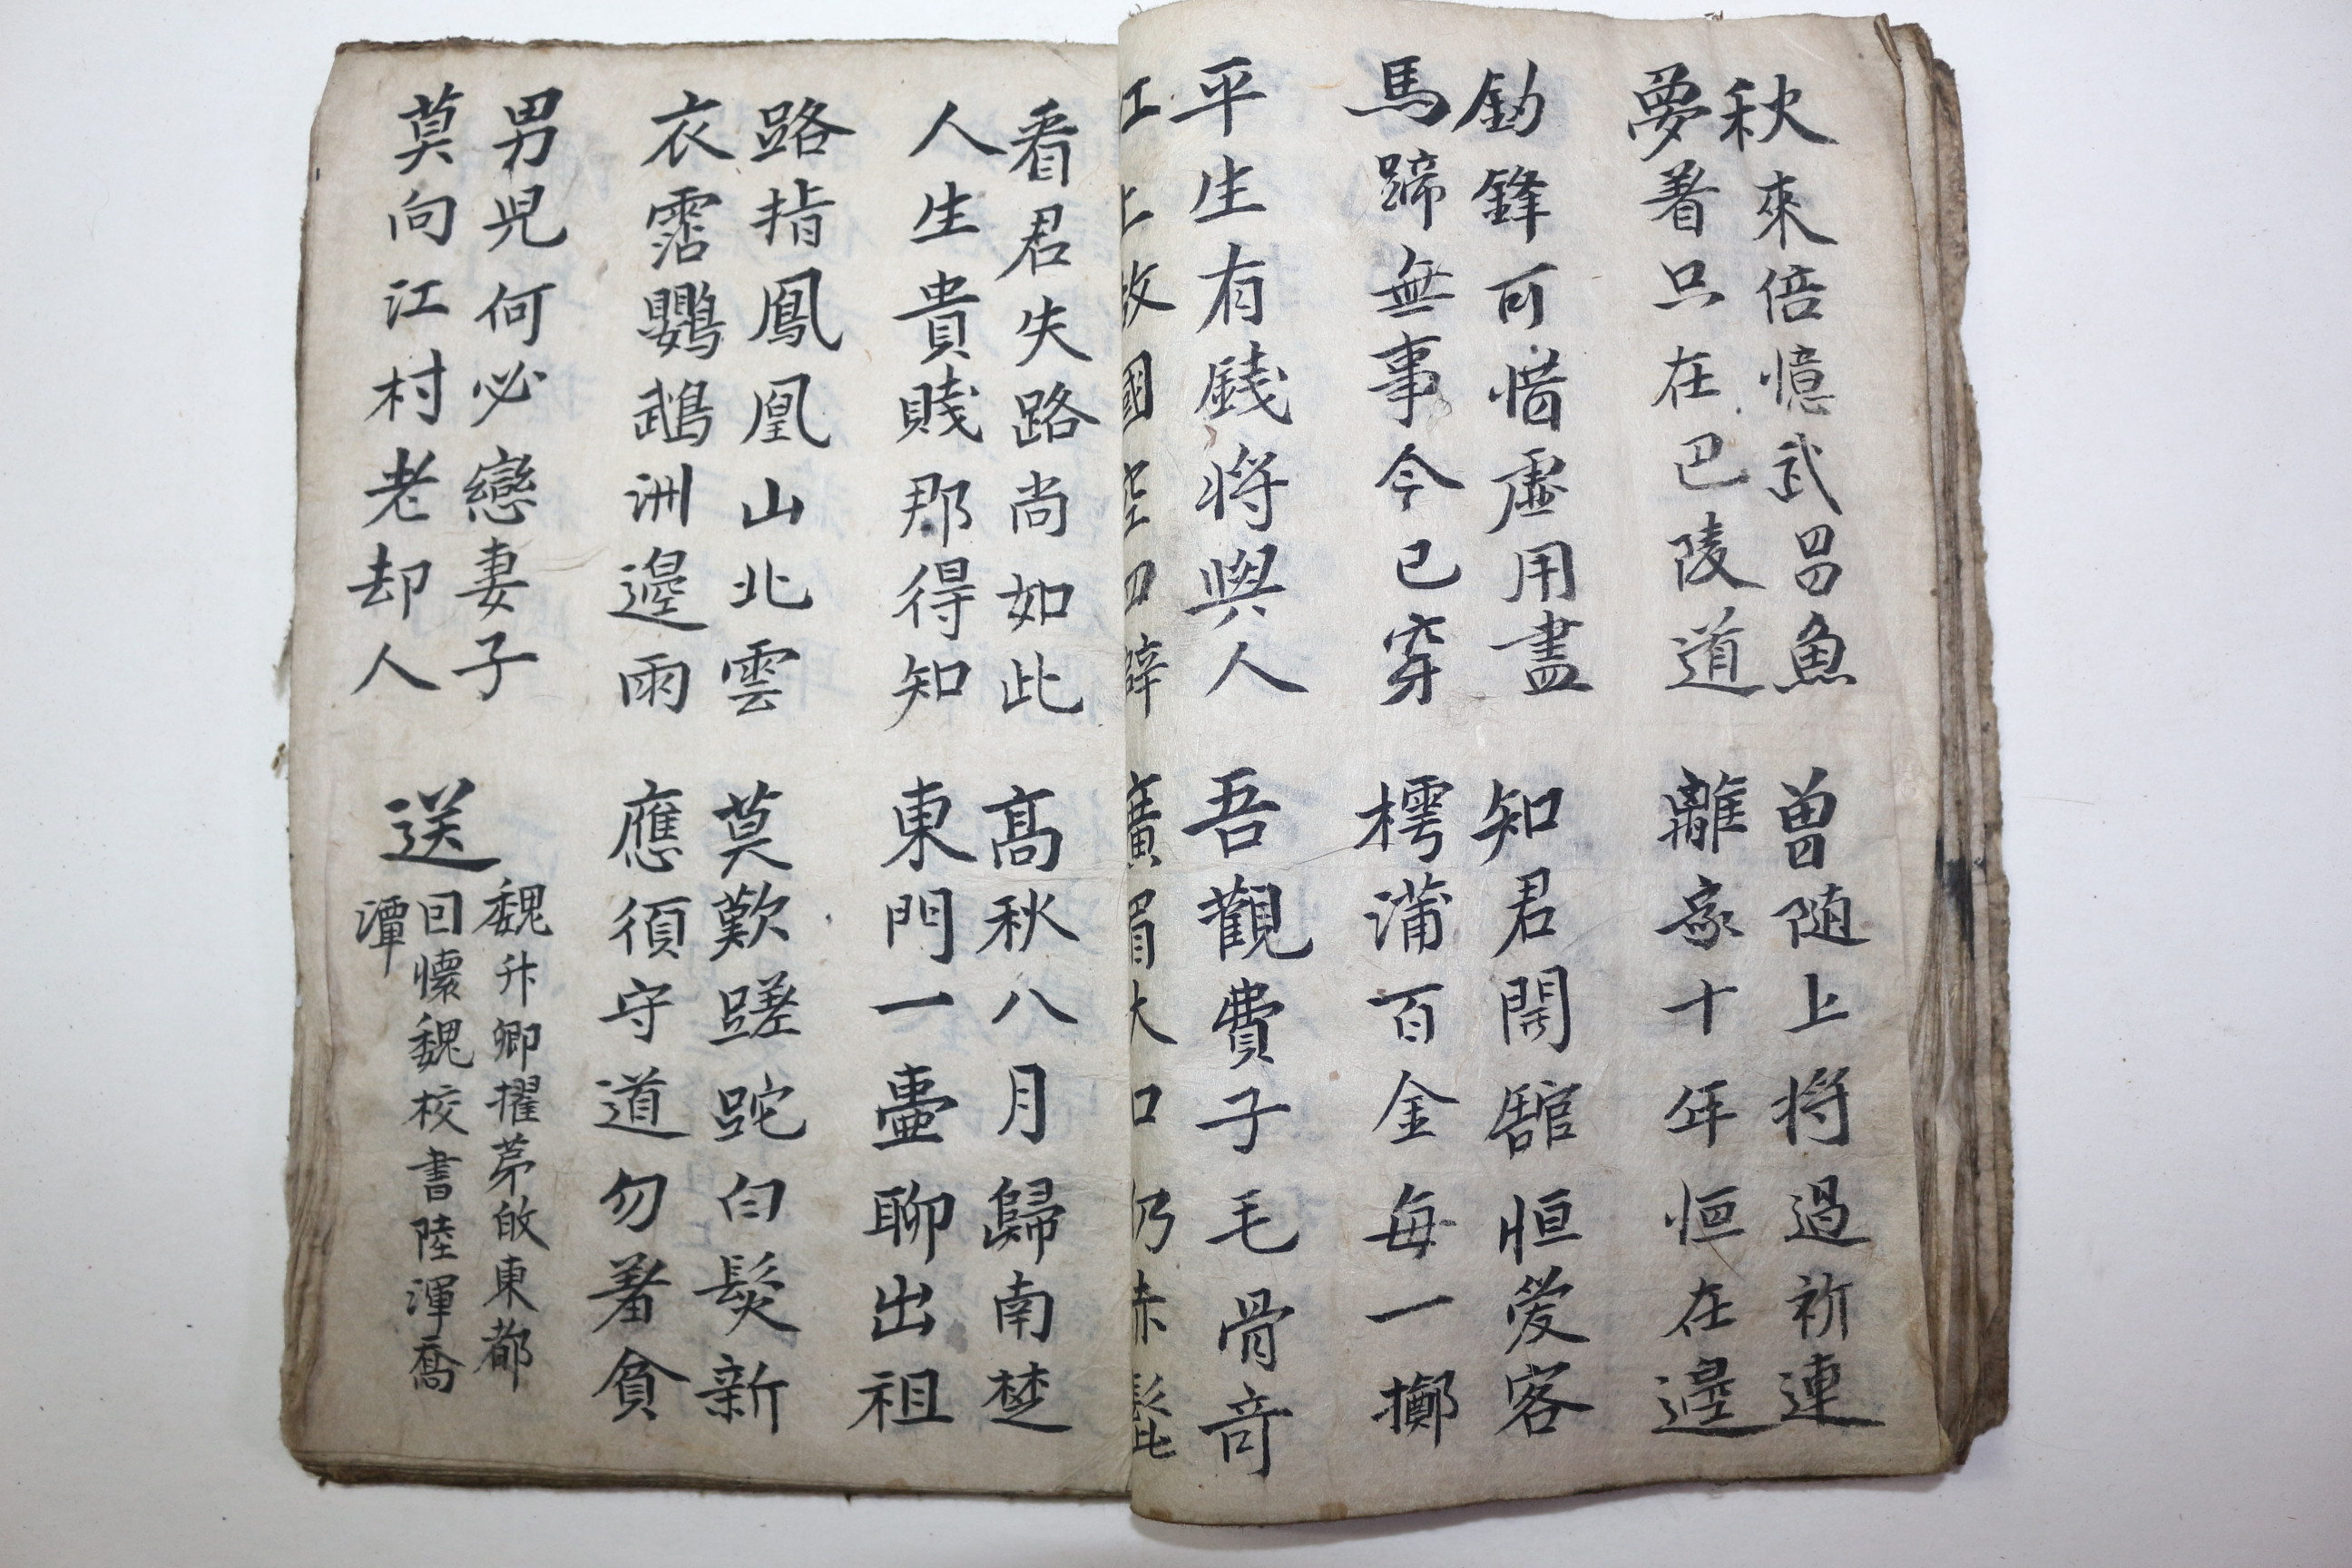 秋來倍憶武昌魚
夢着只在巴陵道
曾随上將過祈連
離家十年恒在邊
釰鋒可惜虛用盡
馬蹄無事今已穿
知君開舘恒愛客
樗蒲百金每一擲
平生有錢將與人
江上故國空四壁
吾觀費子毛骨奇
廣眉大口仍赤髭
看君失路尚如此
人生貴賤那得知
高秋八月歸南楚
東門一壷聊出祖
路指鳳凰山北雲
衣霑鸚鵡洲邊雨
莫歎蹉跎白髮新
應須守道勿羞貧
男児何必戀妻子
莫向江村老却人
送
魏升卿擢苐敀東都
回懷魏校書陸渾喬
潭